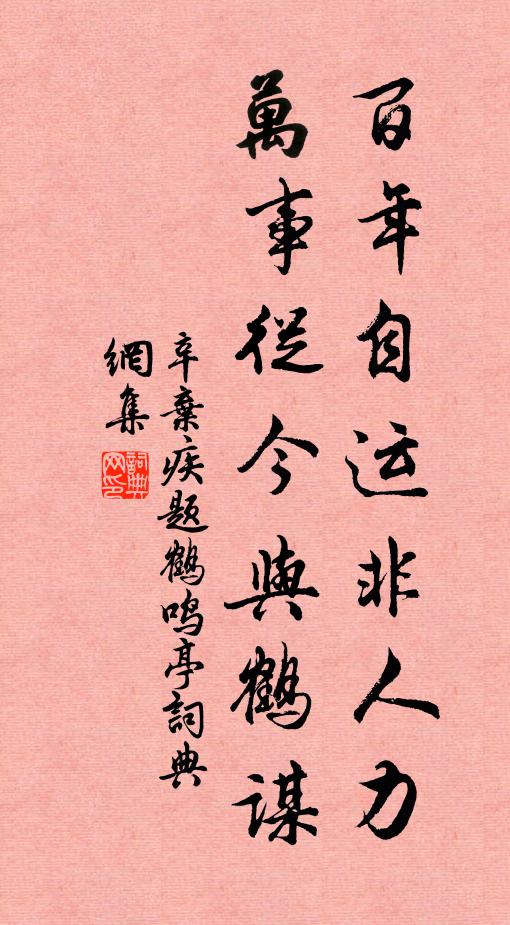 百年自运非人力
萬事從今與鶴謀
辛棄疾题鶴鸣亭詞典
網集
詞典网印